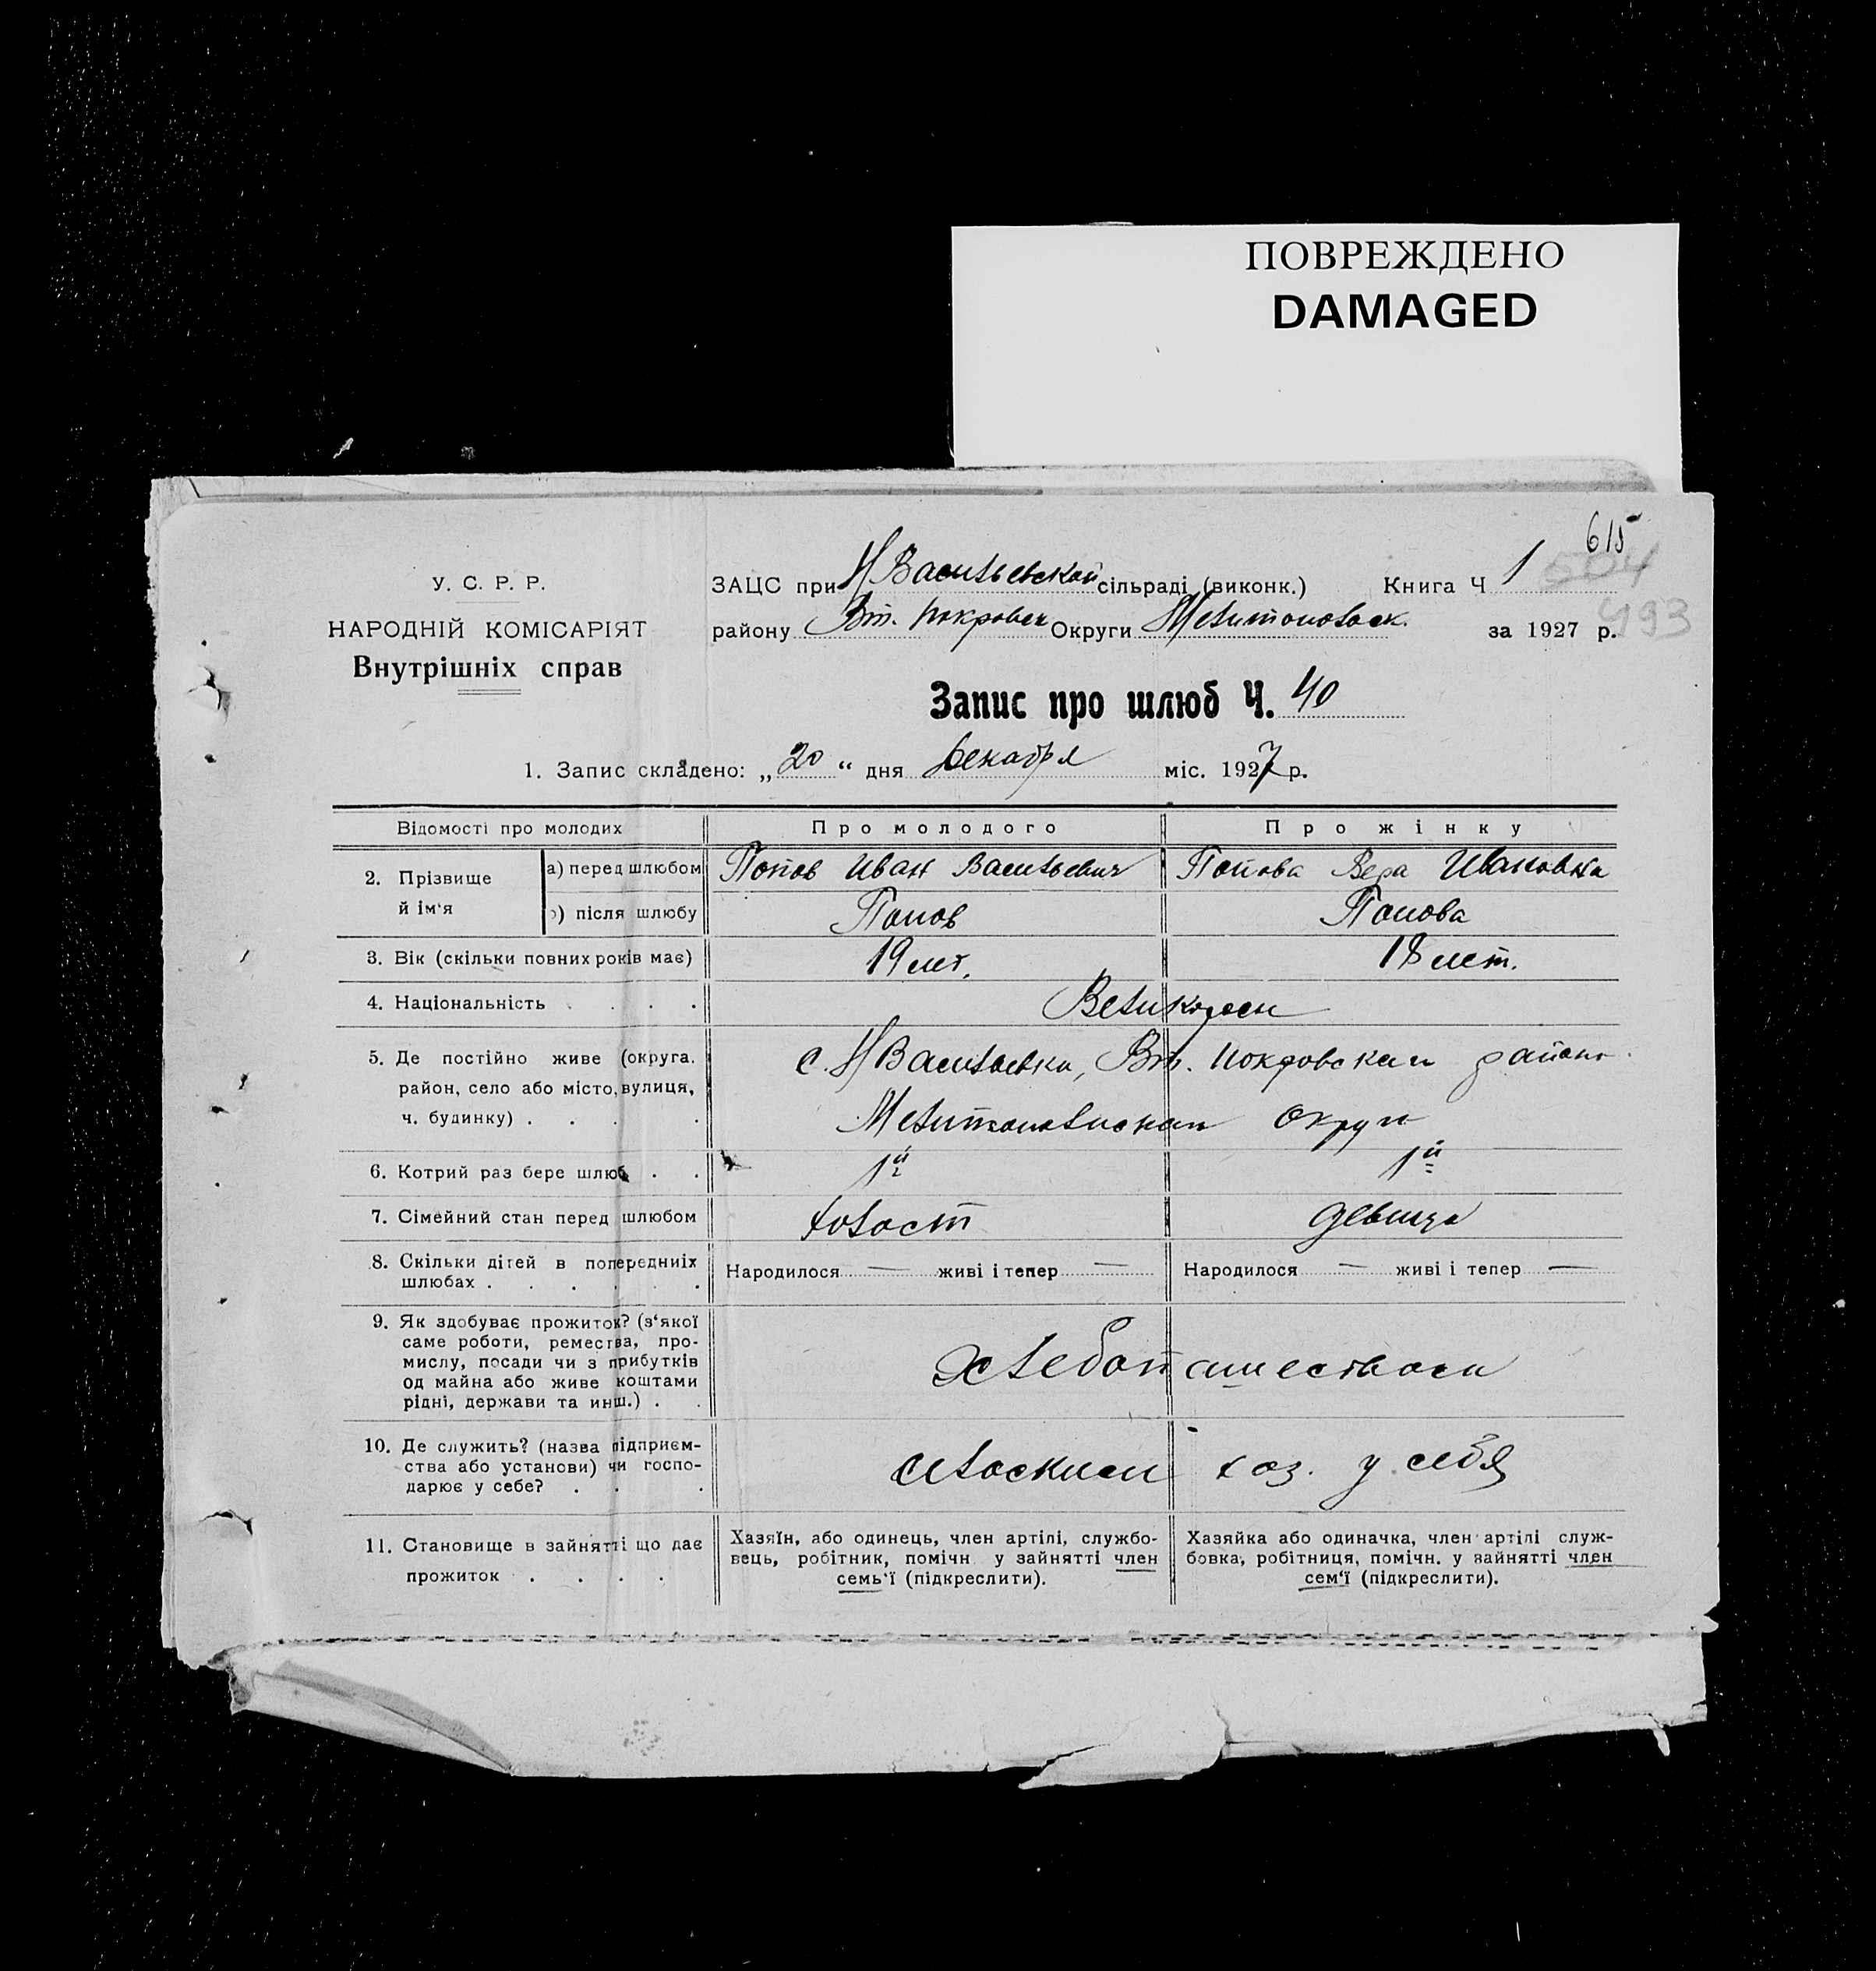 ПОВРЕЖДЕНО
DAMAGED
615
504
493
У. С. Р. Р.
НАРОДНІЙ КОМІСАРІЯТ
Внутрішніх справ
ЗАЦС при Н Васильевской сільраді (виконк.) Книга Ч 1
району Вт. Покровск Округи Мелитопольск. за 1927 р.
Запис про шлюб Ч. 40
1. Запис складено: „20“ дня Декабря міс. 1927 р.
Відомості про молодих Про молодого Про жінку
2. Прізвище й ім‘я а) перед шлюбом Попов Иван Васильевич Попова Вера Ивановна
б) після шлюбу Попов Попова
3. Вік (скільки повних років має) 19 лет. 18 лет.
4. Національність . . . . Великороси
5. Де постійно живе (округа, с. Н Васильевки, Вт. Покровского района
район, село або місто, вулиця,
ч. будинку) . . . . Мелитопольского округи
6. Котрий раз бере шлюб . . 1й 1й
7. Сімейний стан перед шлюбом холост девица
8. Скільки дітей в попередниіх Народилося — живі і тепер — Народилося — живі і тепер —
шлюбах . . . . . .
9. Як здобуває прожиток? (з‘якої
саме роботи, ремества, про-
мислу, посади чи з прибутків хлебопашеством
од майна або живе коштами
рідні, держави та инш.) . .
10. Де служить? (назва підприєм-
ства або установи) чи госпо- сельским хоз. у себя
дарює у себе? . . .
11. Становище в зайнятті що дає Хазяїн, або одинець, член артілі, службо- Хазяйка або одиначка, член артілі служ-
вець, робітник, помічн у зайнятті член бовка, робітниця, помічн. у зайнятті член
прожиток . . . . семь‘ї (підкреслити). сем‘ї (підкреслити).